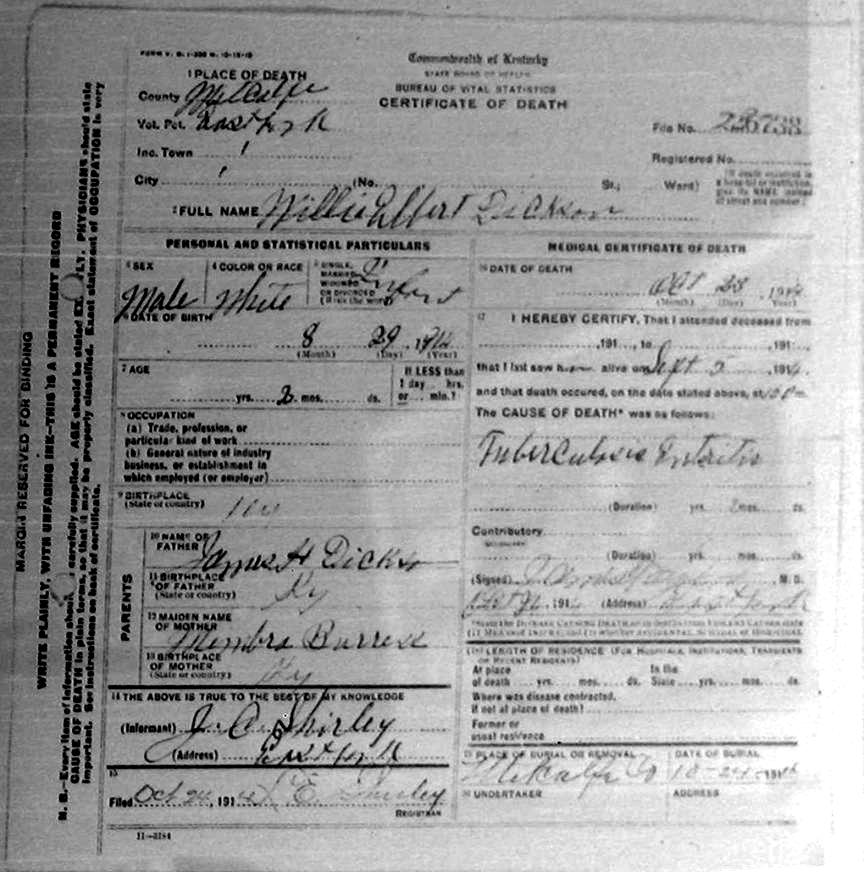 FORM V. S. 1-
Commonwealth of Kentucky
STATE BOARD OF HEALTH
BUREAU OF VITAL STATISTICS
CERTIFICATE OF DEATH
1 PLACE OF DEATH
County Metcalfe
Vot. Pct. East Fork
Inc. Town
City (No. St.; Ward)
File No.
Registered No.
2 FULL NAME Willie Elbert Dickson
PERSONAL AND STATISTICAL PARTICULARS
3 SEX
Male
4 COLOR OR RACE
White
5 SINGLE, MARRIED, WIDOWED OR DIVORCED (Write the word)
Infant
6 DATE OF BIRTH
8 29 191
(Month) (Day) (Year)
7 AGE
yrs. 2 mos. ds.
If LESS than 1 day hrs. or min.?
8 OCCUPATION
(a) Trade, profession, or
particular kind of work
(b) General nature of industry
business, or establishment in
which employed (or employer)
9 BIRTHPLACE
(State or country)
PARENTS
10 NAME OF FATHER
James H Dickson
11 BIRTHPLACE OF FATHER
(State or country)
Ky
12 MAIDEN NAME OF MOTHER
Burress
13 BIRTHPLACE OF MOTHER
(State or country)
Ky
14 THE ABOVE IS TRUE TO THE BEST OF MY KNOWLEDGE
(Informant) J. C. Shirley
(Address) East Fork
15
Filed Oct 24, 191 E. Shirley
REGISTRAR
11-3184
MEDICAL CERTIFICATE OF DEATH
16 DATE OF DEATH
Oct 23, 191
(Month) (Day) (Year)
17 I HEREBY CERTIFY, That I attended deceased from
, 191 , to , 191 ,
that I last saw h alive on Sept 2 191
and that death occured, on the date stated above, at m.
The CAUSE OF DEATH* was as follows:
Tuberculosis
(Duration) yrs. mos. ds.
Contributory
(Duration) yrs. mos. ds.
(Signed) M. D.
191 (Address) East Fork
18 LENGTH OF RESIDENCE (FOR HOSPITALS, INSTITUTIONS, TRANSIENTS OR RECENT RESIDENTS)
At place In the
of death yrs. mos. ds. State yrs. mos. ds.
Where was disease contracted,
if not at place of death?
Former or
usual residence
19 PLACE OF BURIAL OR REMOVAL
Metcalfe Co
DATE OF BURIAL
10-24- 191
20 UNDERTAKER
ADDRESS
MARGIN RESERVED FOR BINDING
WRITE PLAINLY, WITH UNFADING INK—THIS IS A PERMANENT RECORD
N. B.—Every item of information should carefully supplied. AGE should be stated PHYSICIANS should state
CAUSE OF DEATH in plain terms, so that it may be properly classified. Exact statement of OCCUPATION is very
important. See instructions on back of certificate.